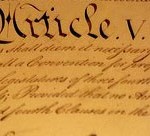 Article. V.
shall deem it necessary
all a Convention for prop
Legislatures of three fourths
; Provided that no Am
fourth Clauses in the